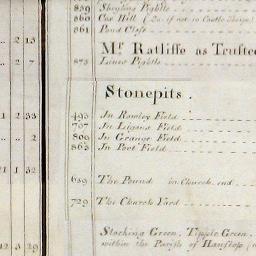 859 Shouling Pightle
860 Car Hill (Do. if not in Castle Thorpe)
861 Pond Close
.. 2 13
Mr. Ratliffe as Trustee
.. 2 7
873 Lains Pightle
Stonepits.
1 2 33
493 In Rowley Field
797 In Lugons Field
.. .. 2
800 In Grange Field
863 In Port Field
21 1 32
659 The Pound in Church end
729 The Church Yard
Stocking Green, Tipple Green,
12 3 29
within the Parish of Hanslop